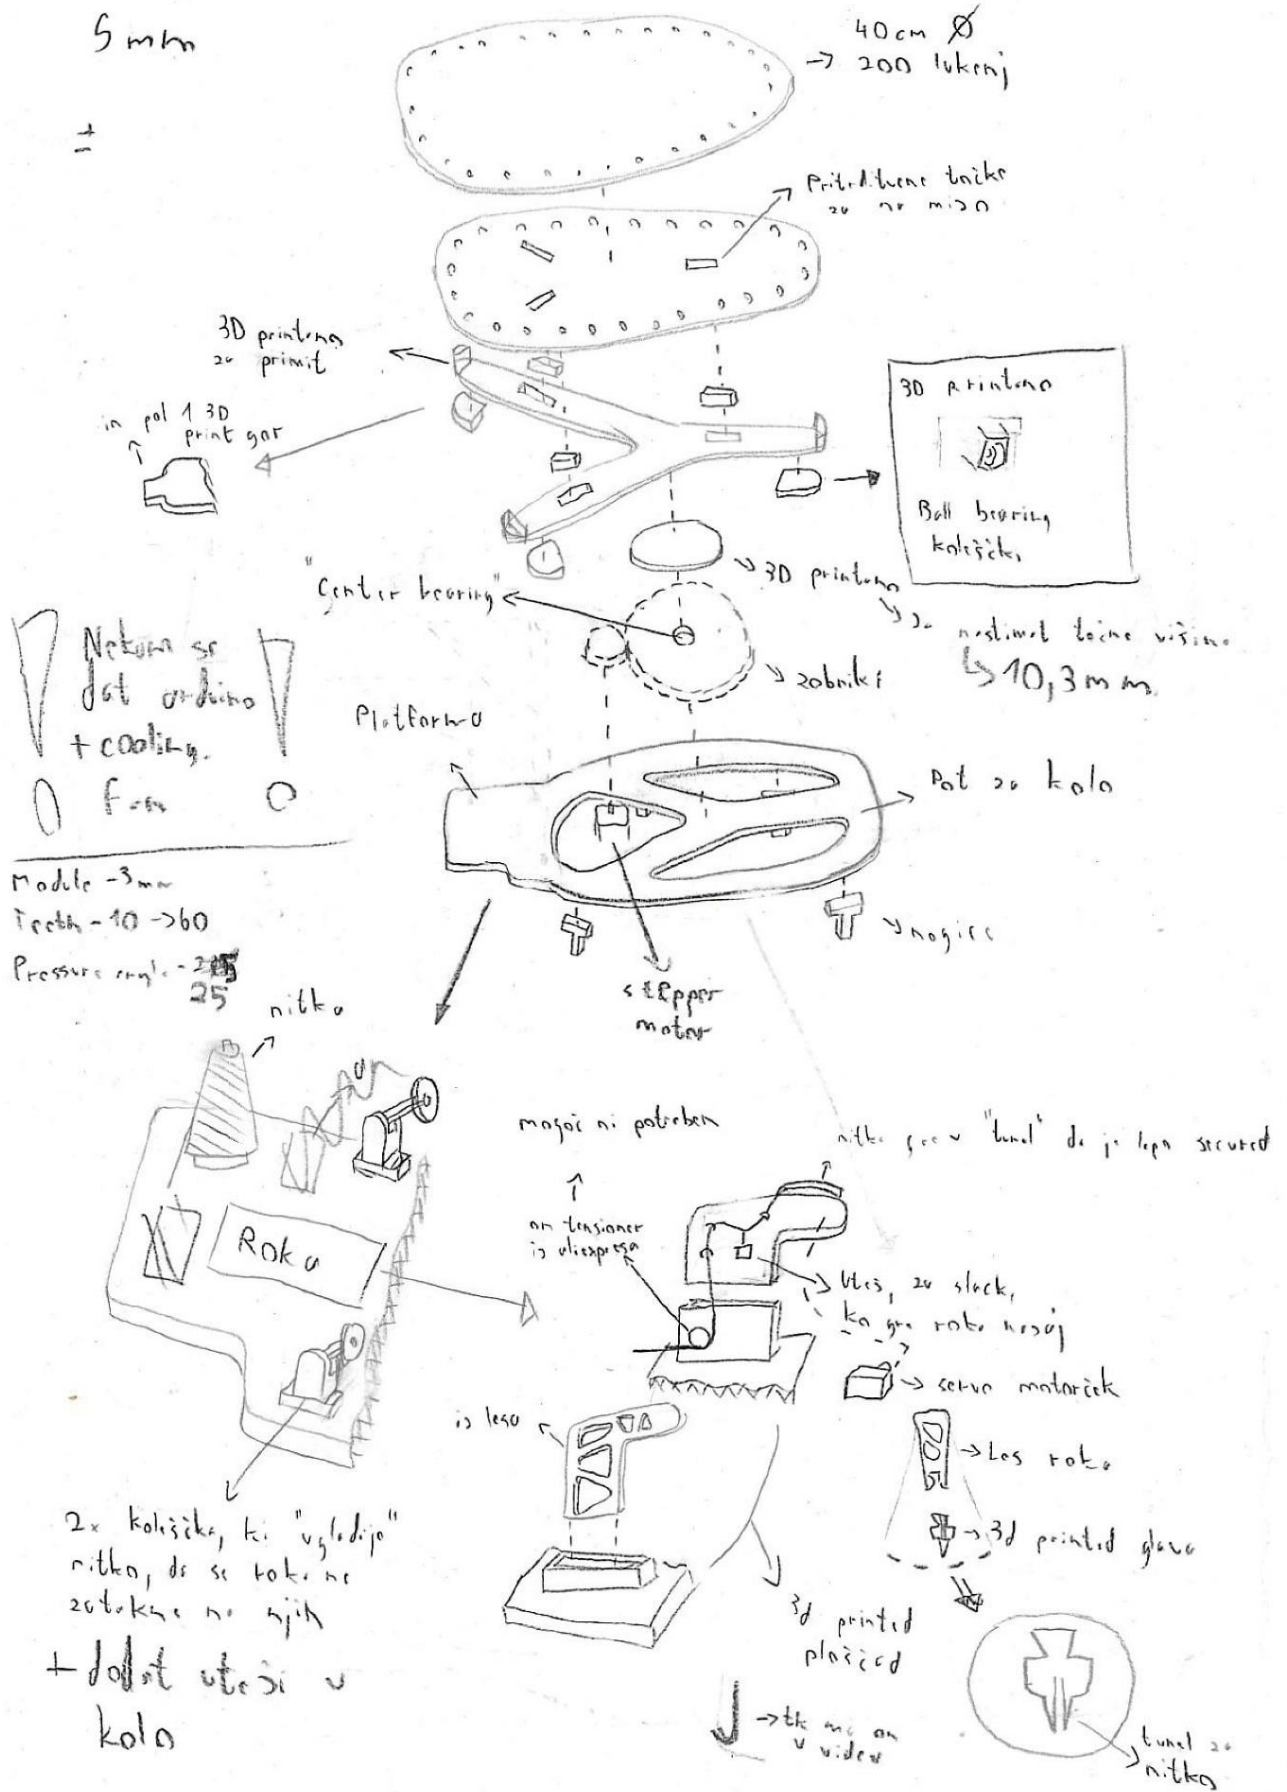 5 mm
±
40 cm Ø
→ 200 lukenj
Pritrditvene točke
za na mizo
3D printano
za primit
in pol 1 3D
print gor
3D printano
Ball bearing
kolešček
"Center bearing"
3D printano
za
nastimat točno višino
10,3 mm
zobniki
Nekam se
dat arduino
+ cooling
fan
Platforma
Pot za kolo
Module - 3 mm
Teeth - 10 -> 60
Pressure angle -
25
nogice
stepper
motor
nitka
mogoč ni potreben
nitka gre v "tunel" da je lepo secured
on tensioner
iz aliexpresa
Roka
Utež, za slack,
ko gre roka nazaj
servo motorček
iz lesa
Les roka
3d printed glava
2x koleščka, ki "vgladijo"
nitko, da se roka ne
zatakne na njih
+ dodat uteži v
kolo
3d printed
v videu
tunel za
nitko